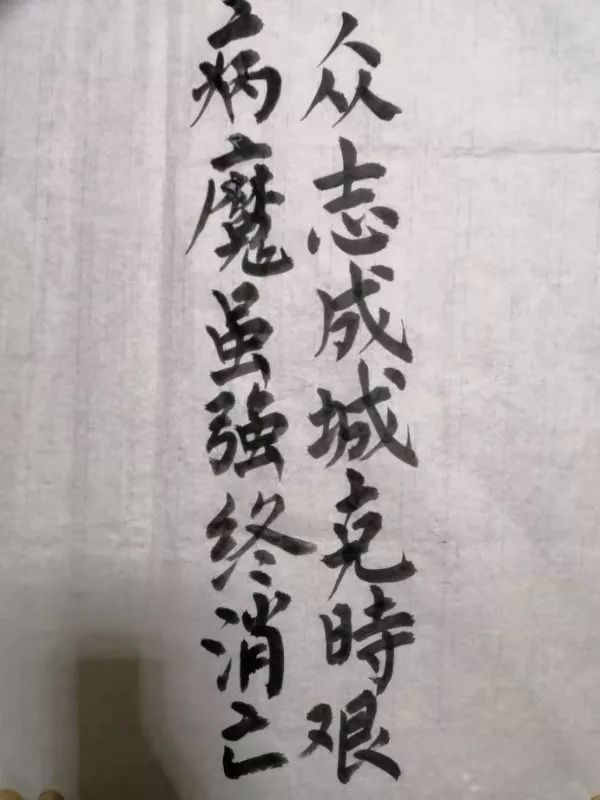 众志成城克時艰
病魔虽强终消亡